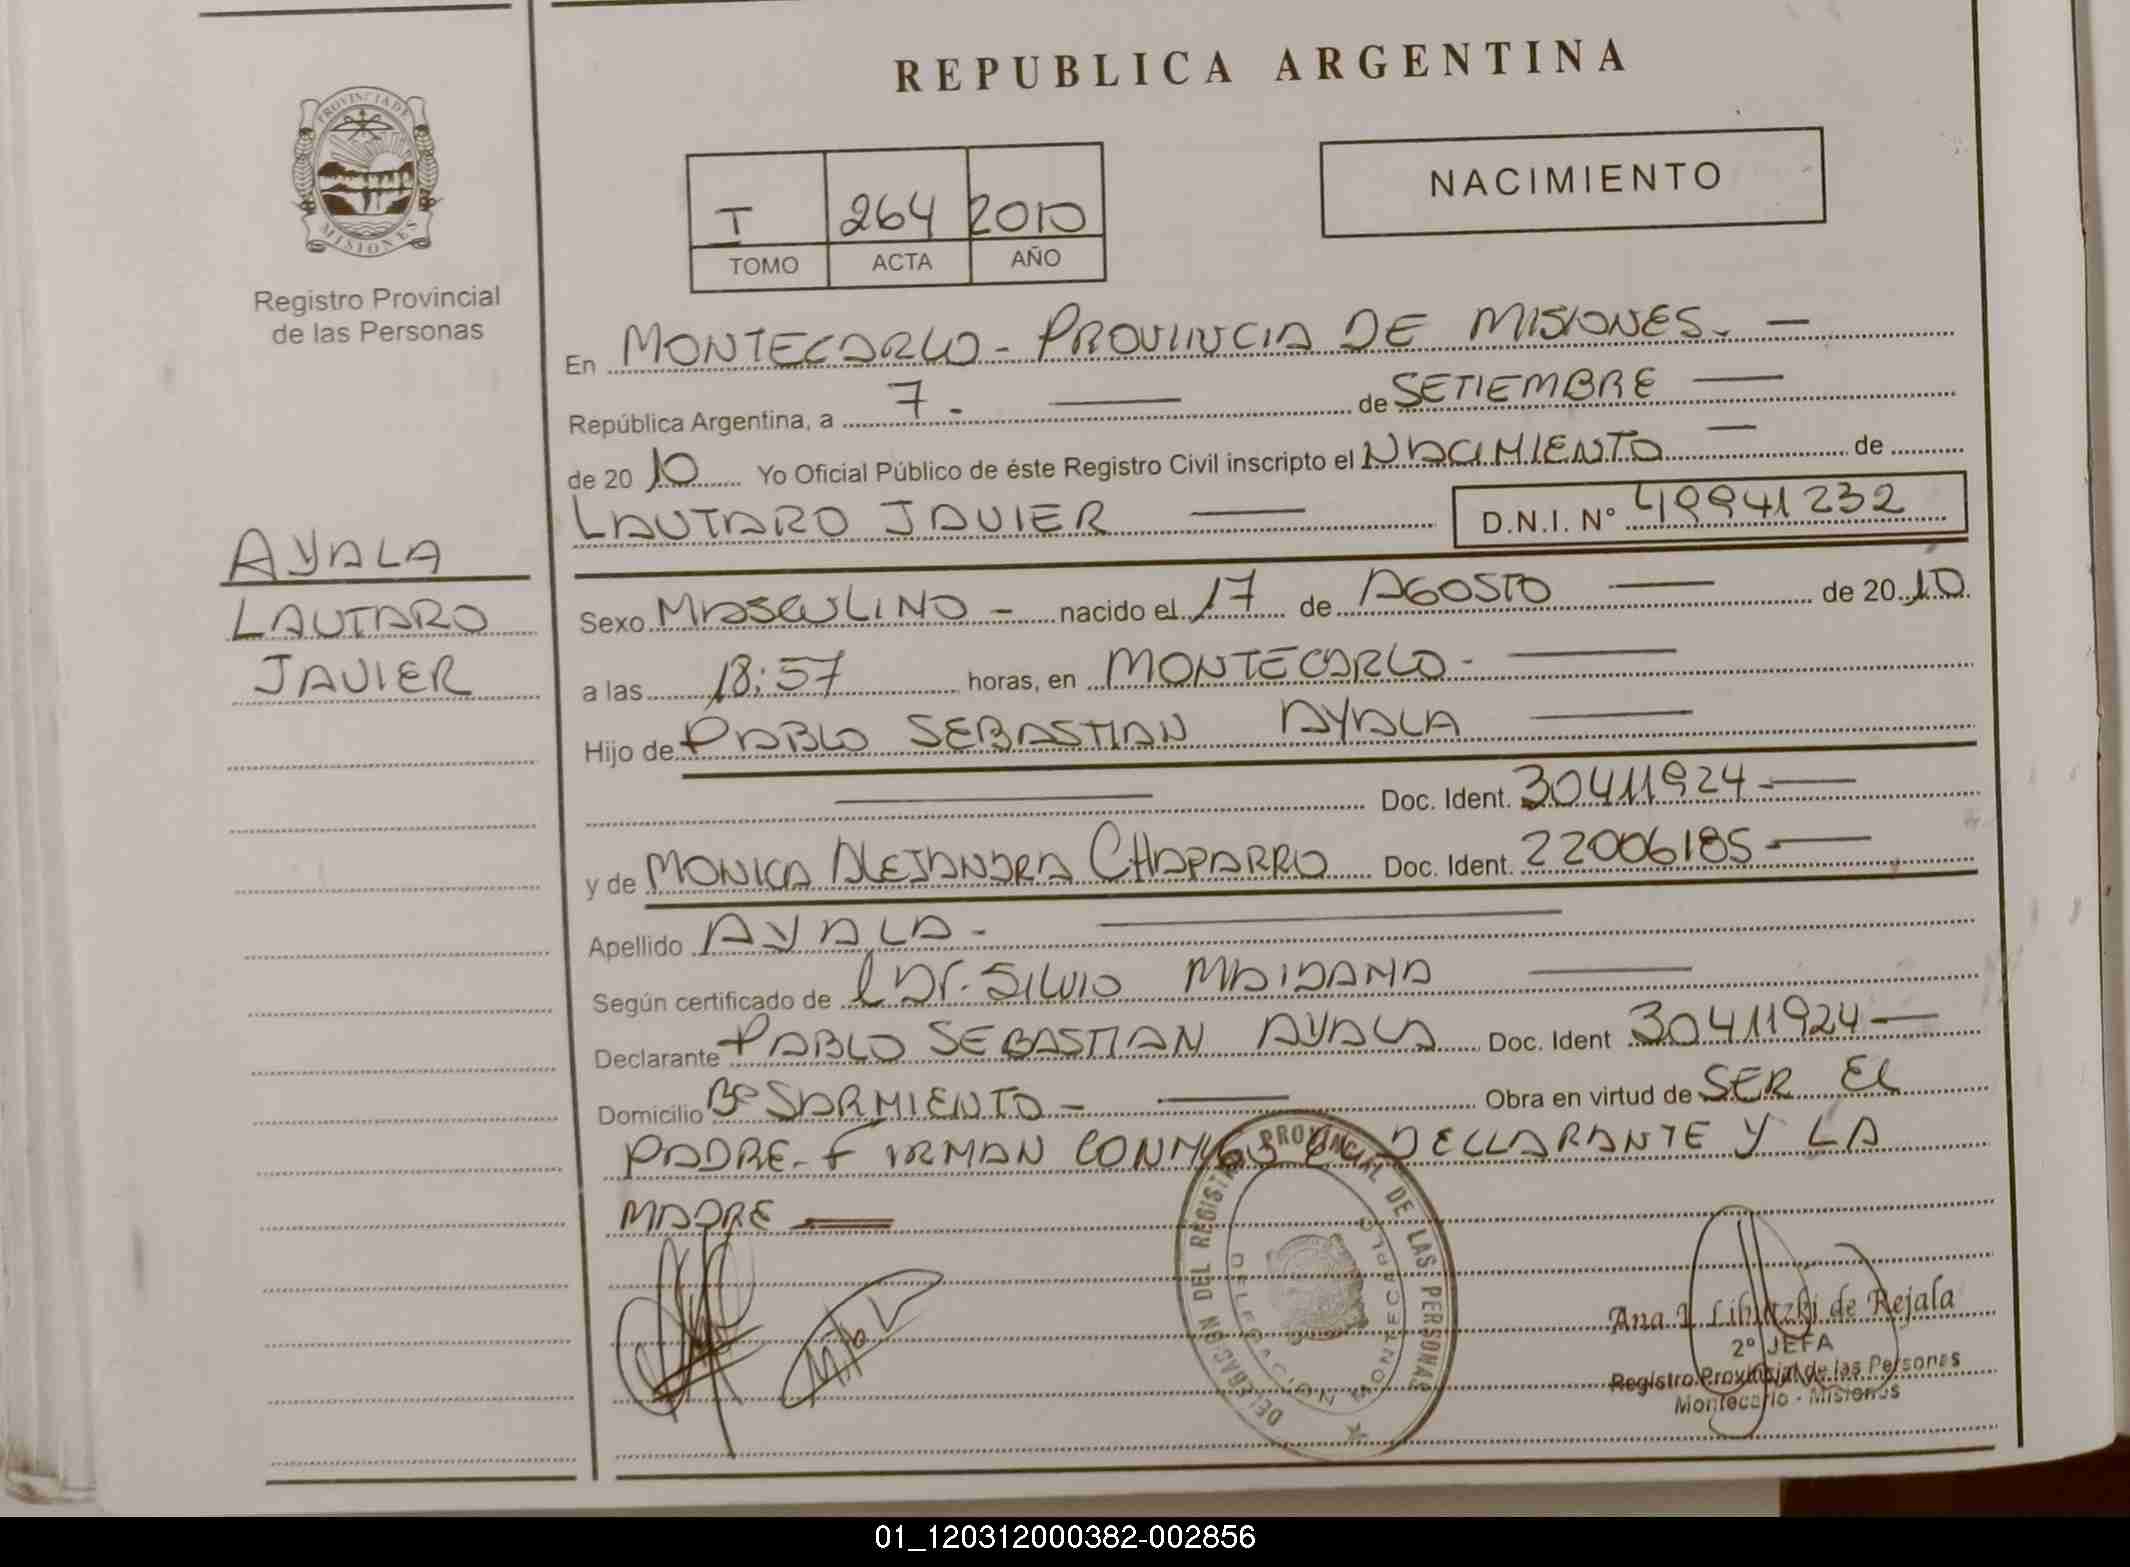 REPUBLICA ARGENTINA
PROVINCIA DE MISIONES
Registro Provincial
de las Personas
NACIMIENTO
I 264 2010
TOMO ACTA AÑO
En MONTECARLO - PROVINCIA DE MISIONES. —
República Argentina, a 7 - — de SETIEMBRE —
de 20 10 Yo Oficial Público de éste Registro Civil inscripto el NACIMIENTO — de
LAUTARO JAVIER — D.N.I. Nº 49941232
AYALA
LAUTARO
JAVIER
Sexo MASCULINO - nacido el 17 de AGOSTO — de 20 10
a las 18:57 horas, en MONTECARLO - —
Hijo de PABLO SEBASTIAN AYALA —
— Doc. Ident. 30411924 —
y de MONICA ALEJANDRA CHAPARRO Doc. Ident. 22006185 —
Apellido AYALA - —
Según certificado de Dr. SILVIO MAIDANA —
Declarante PABLO SEBASTIAN AYALA Doc. Ident 30411924 —
Domicilio Bº SARMIENTO - — Obra en virtud de SER EL
PADRE - FIRMAN CONMIGO EL DECLARANTE Y LA
MADRE
DELEGACION DEL REGISTRO PROVINCIAL DE LAS PERSONAS
DELEGACION MONTECARLO
Ana I. Libutzki de Rejala
2º JEFA
Registro Provincial de las Personas
Montecarlo - Misiones
01_120312000382-002856